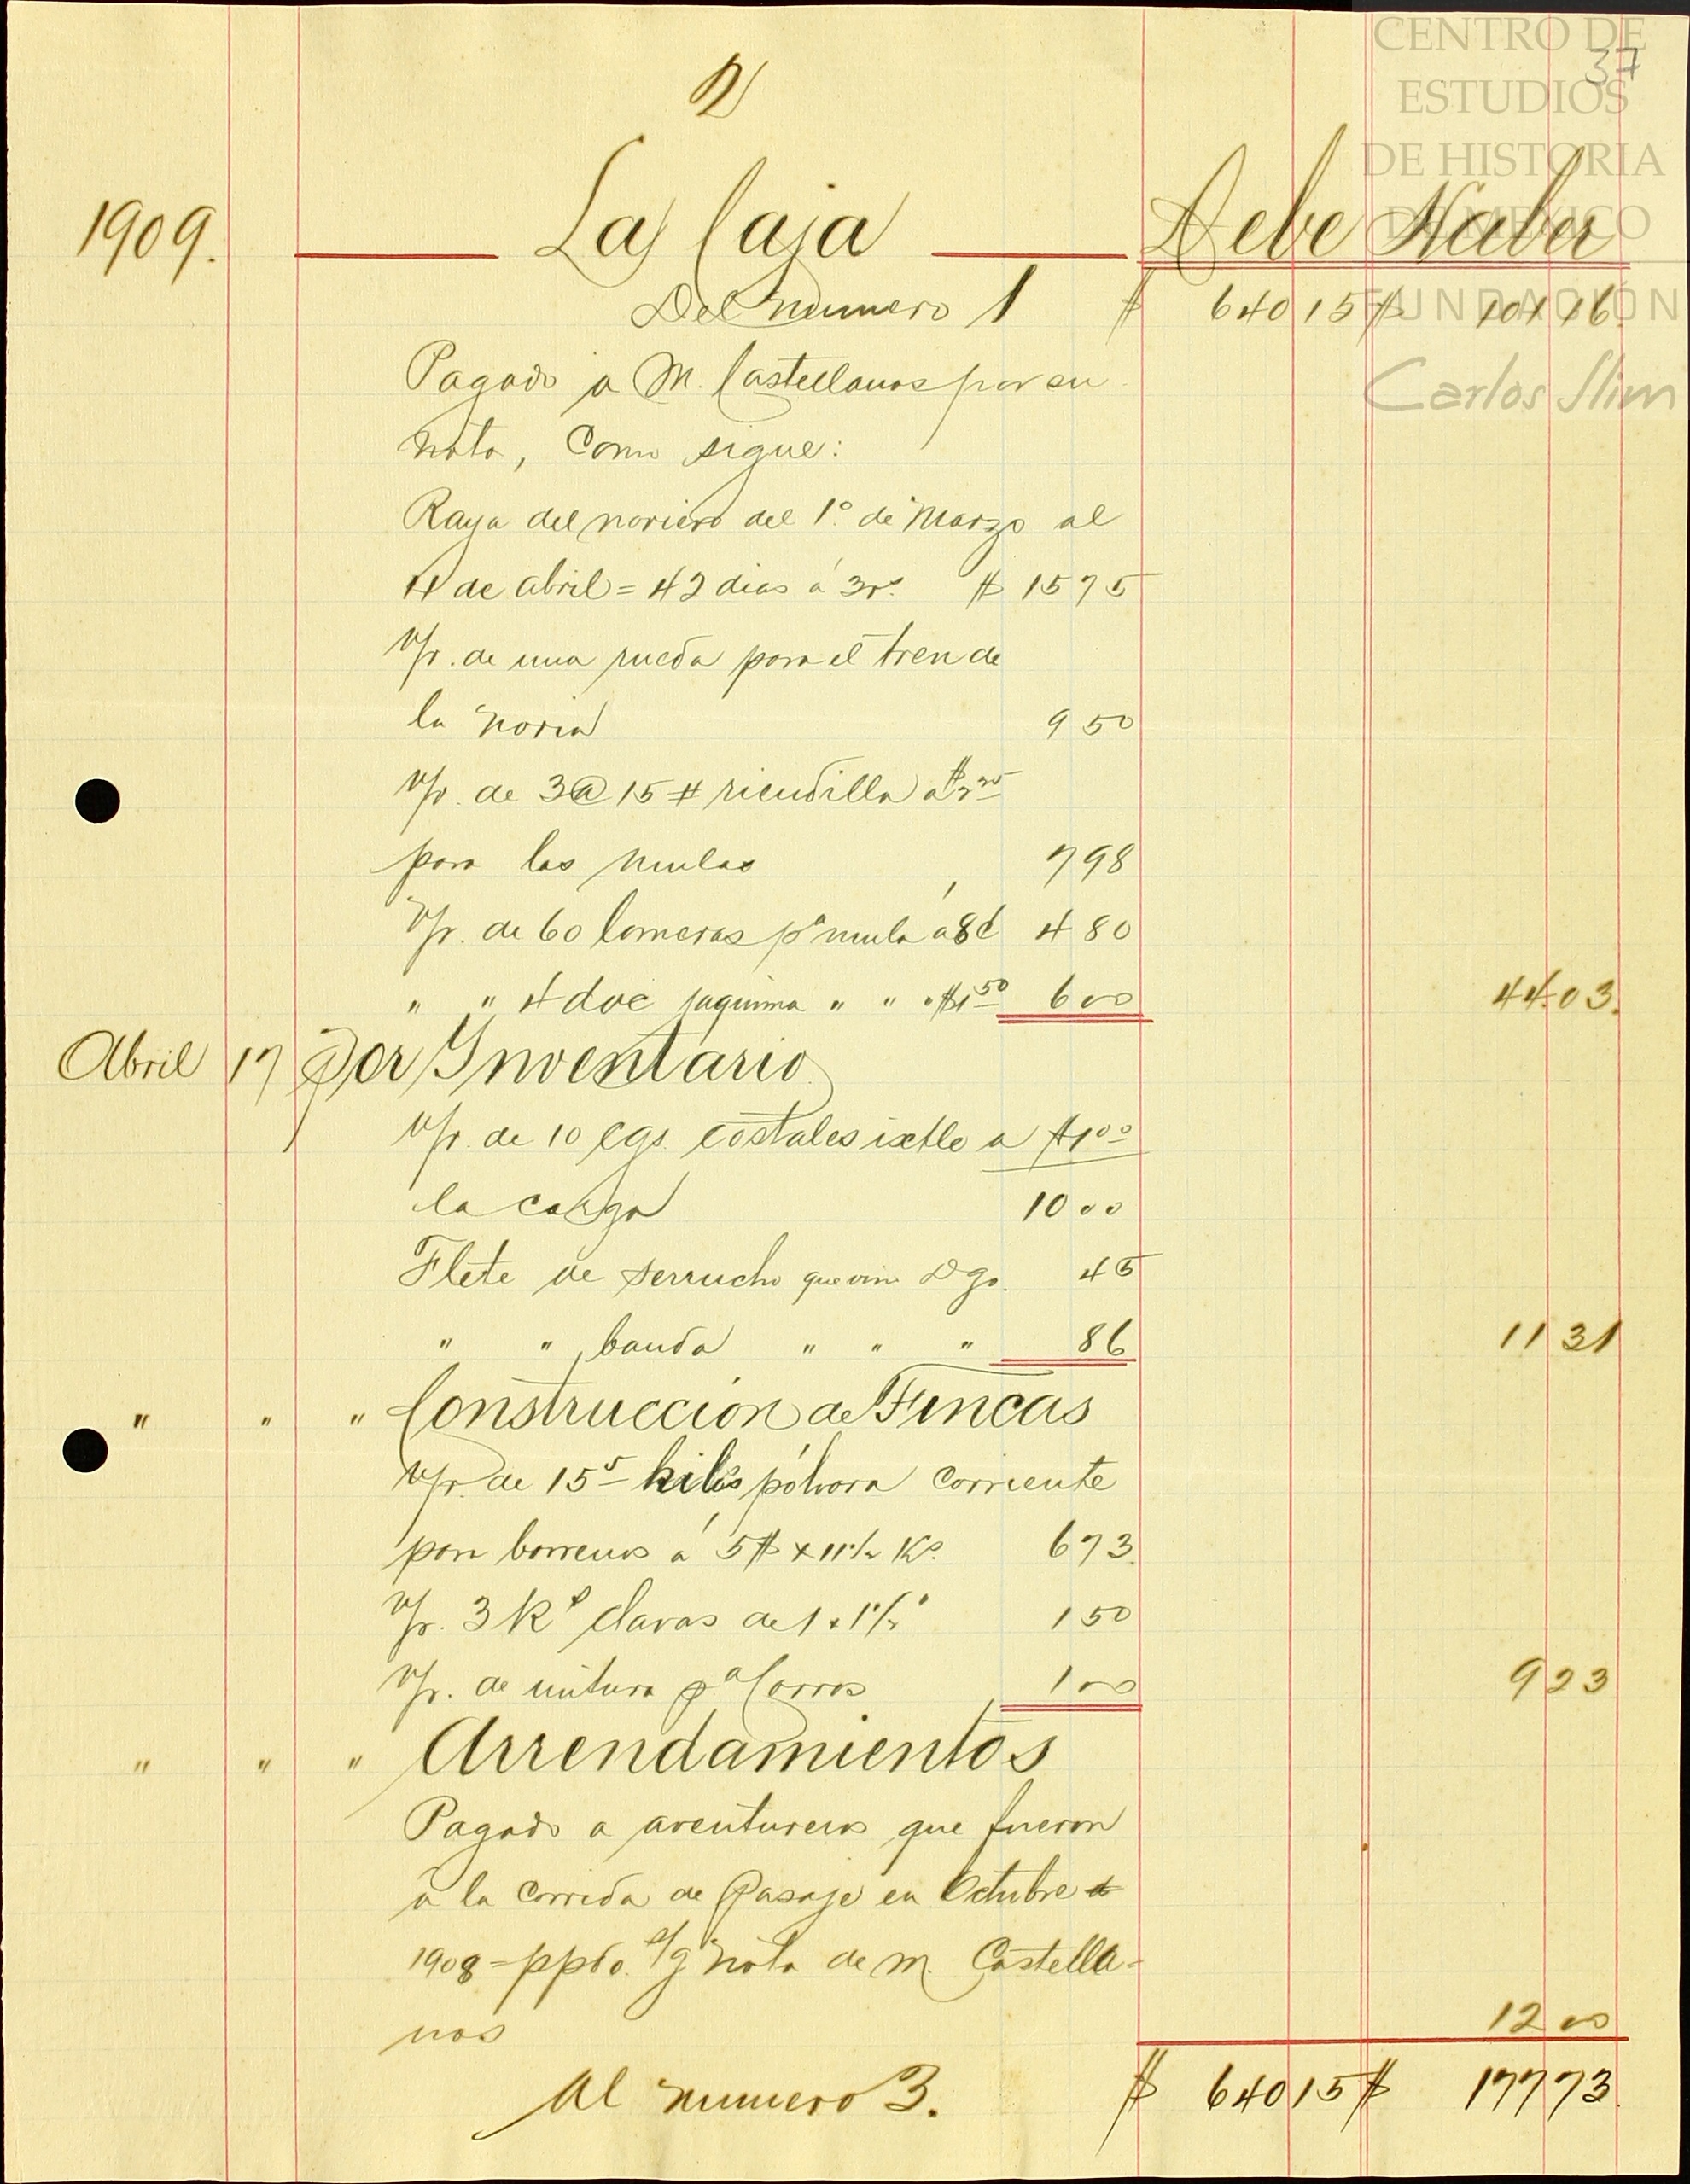 CENTRO DE
37
ESTUDIOS
DE HISTORIA
DE MÉXICO
FUNDACIÓN
Carlos Slim
2
1909. La Caja Debe Haber
Del numero 1 $ 640 15 $ 101 16
Pagado a M. Castellanos por su
nota, como sigue:
Raya del noriero del 1º de Marzo al
11 de abril = 42 dias á 3rs. $ 15 75
V/r. de una rueda para el tren de
la noria 9 50
V/r. de 3@ 15 # riendilla a
para las mulas 7 98
V/r. de 60 lomeras pª mula a 8¢ 4 80
" " 4 doc jaquima " " " $1 50 6 00 44 03.
Abril 17 Por Inventario
V/r. de 10 cgs. costales ixtle a $1 00
la carga 10 00
Flete de serrucho que vino Dgo. 45
" " banda " " " 86 11 31
" " " Construcción de Fincas
V/r. de 15 5 kilos pólvora corriente
para barrenos á 5$ x 11 1/2 Ks. 6 73
V/r. 3 Ks clavos de 1 x 1 1/2" 1 50
V/r. de untura pª Carros 1 00 9 23
" " " Arrendamientos
Pagado a aventureros que fueron
a la corrida de Pasaje en Octubre de
1908 = ppdo. s/g nota de M. Castella-
nos 12 00
Al numero 3. $ 640 15 $ 177 73